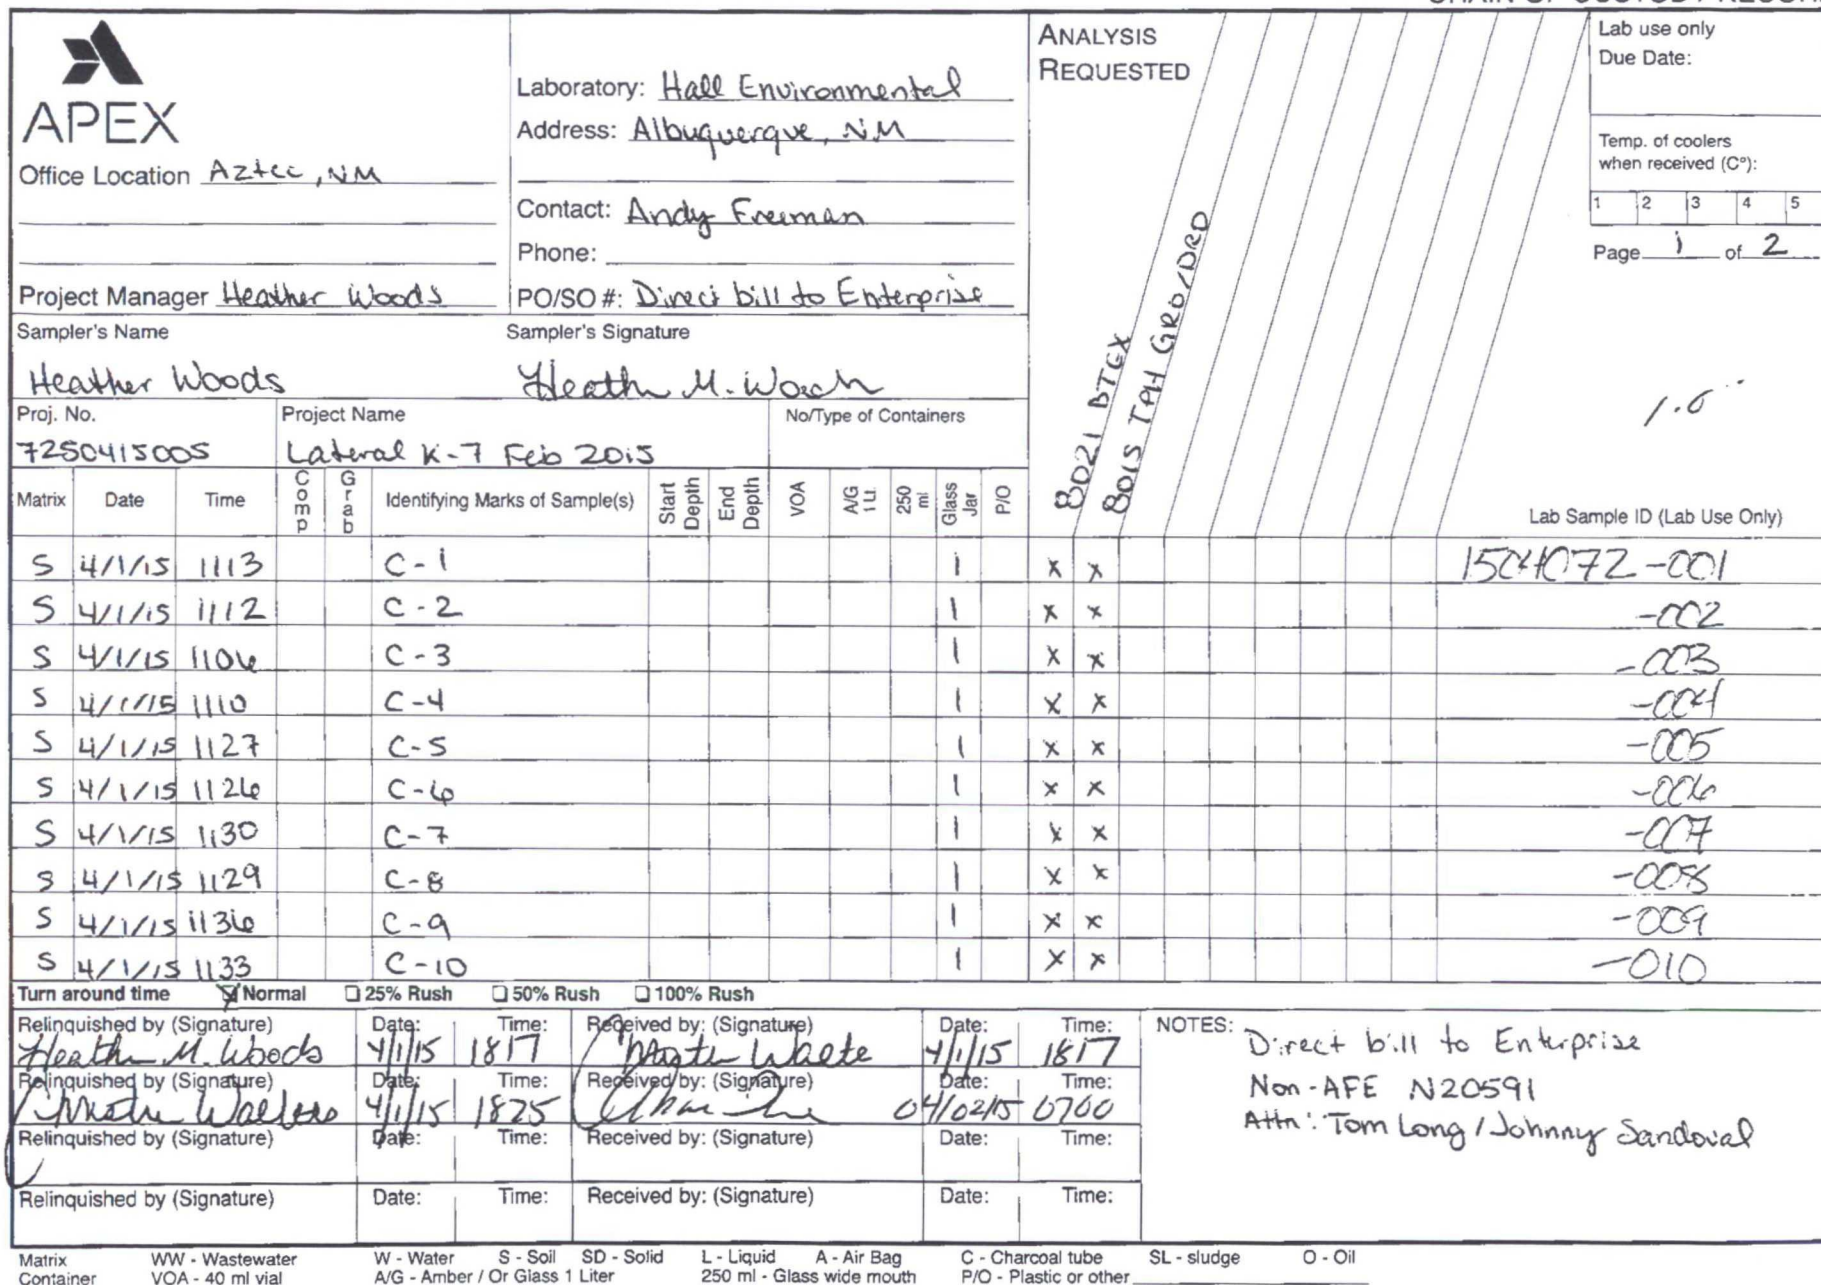 APEX
Office Location Aztec, NM
Project Manager Heather Woods
Laboratory: Hall Environmental
Address: Albuquerque, NM
Contact: Andy Freeman
Phone:
PO/SO #: Direct bill to Enterprise
ANALYSIS
REQUESTED
8021 BTEX
8015 TPH GRO/DRO
Lab use only
Due Date:
Temp. of coolers
when received (C°):
1 2 3 4 5
Page 1 of 2
1.0
Sampler's Name
Heather Woods
Sampler's Signature
Heather M. Woods
Proj. No.
7250415005
Project Name
Lateral K-7 Feb 2015
No/Type of Containers
Matrix Date Time Comp Grab Identifying Marks of Sample(s) Start Depth End Depth VOA A/G 1 Lt. 250 ml Glass Jar P/O Lab Sample ID (Lab Use Only)
S 4/1/15 1113 C-1 1 X X 1504072-001
S 4/1/15 1112 C-2 1 X X -002
S 4/1/15 1106 C-3 1 X X -003
S 4/1/15 1110 C-4 1 X X -004
S 4/1/15 1127 C-5 1 X X -005
S 4/1/15 1126 C-6 1 X X -006
S 4/1/15 1130 C-7 1 X X -007
S 4/1/15 1129 C-8 1 X X -008
S 4/1/15 1136 C-9 1 X X -009
S 4/1/15 1133 C-10 1 X X -010
Turn around time Normal 25% Rush 50% Rush 100% Rush
Relinquished by (Signature) Date: Time: Received by: (Signature) Date: Time:
Heather M. Woods 4/1/15 1817 4/1/15 1817
Relinquished by (Signature) Date: Time: Received by: (Signature) Date: Time:
4/1/15 1825 04/02/15 0700
Relinquished by (Signature) Date: Time: Received by: (Signature) Date: Time:
Relinquished by (Signature) Date: Time: Received by: (Signature) Date: Time:
NOTES: Direct bill to Enterprise
Non-AFE N20591
Attn: Tom Long / Johnny Sandoval
Matrix WW - Wastewater W - Water S - Soil SD - Solid L - Liquid A - Air Bag C - Charcoal tube SL - sludge O - Oil
Container VOA - 40 ml vial A/G - Amber / Or Glass 1 Liter 250 ml - Glass wide mouth P/O - Plastic or other